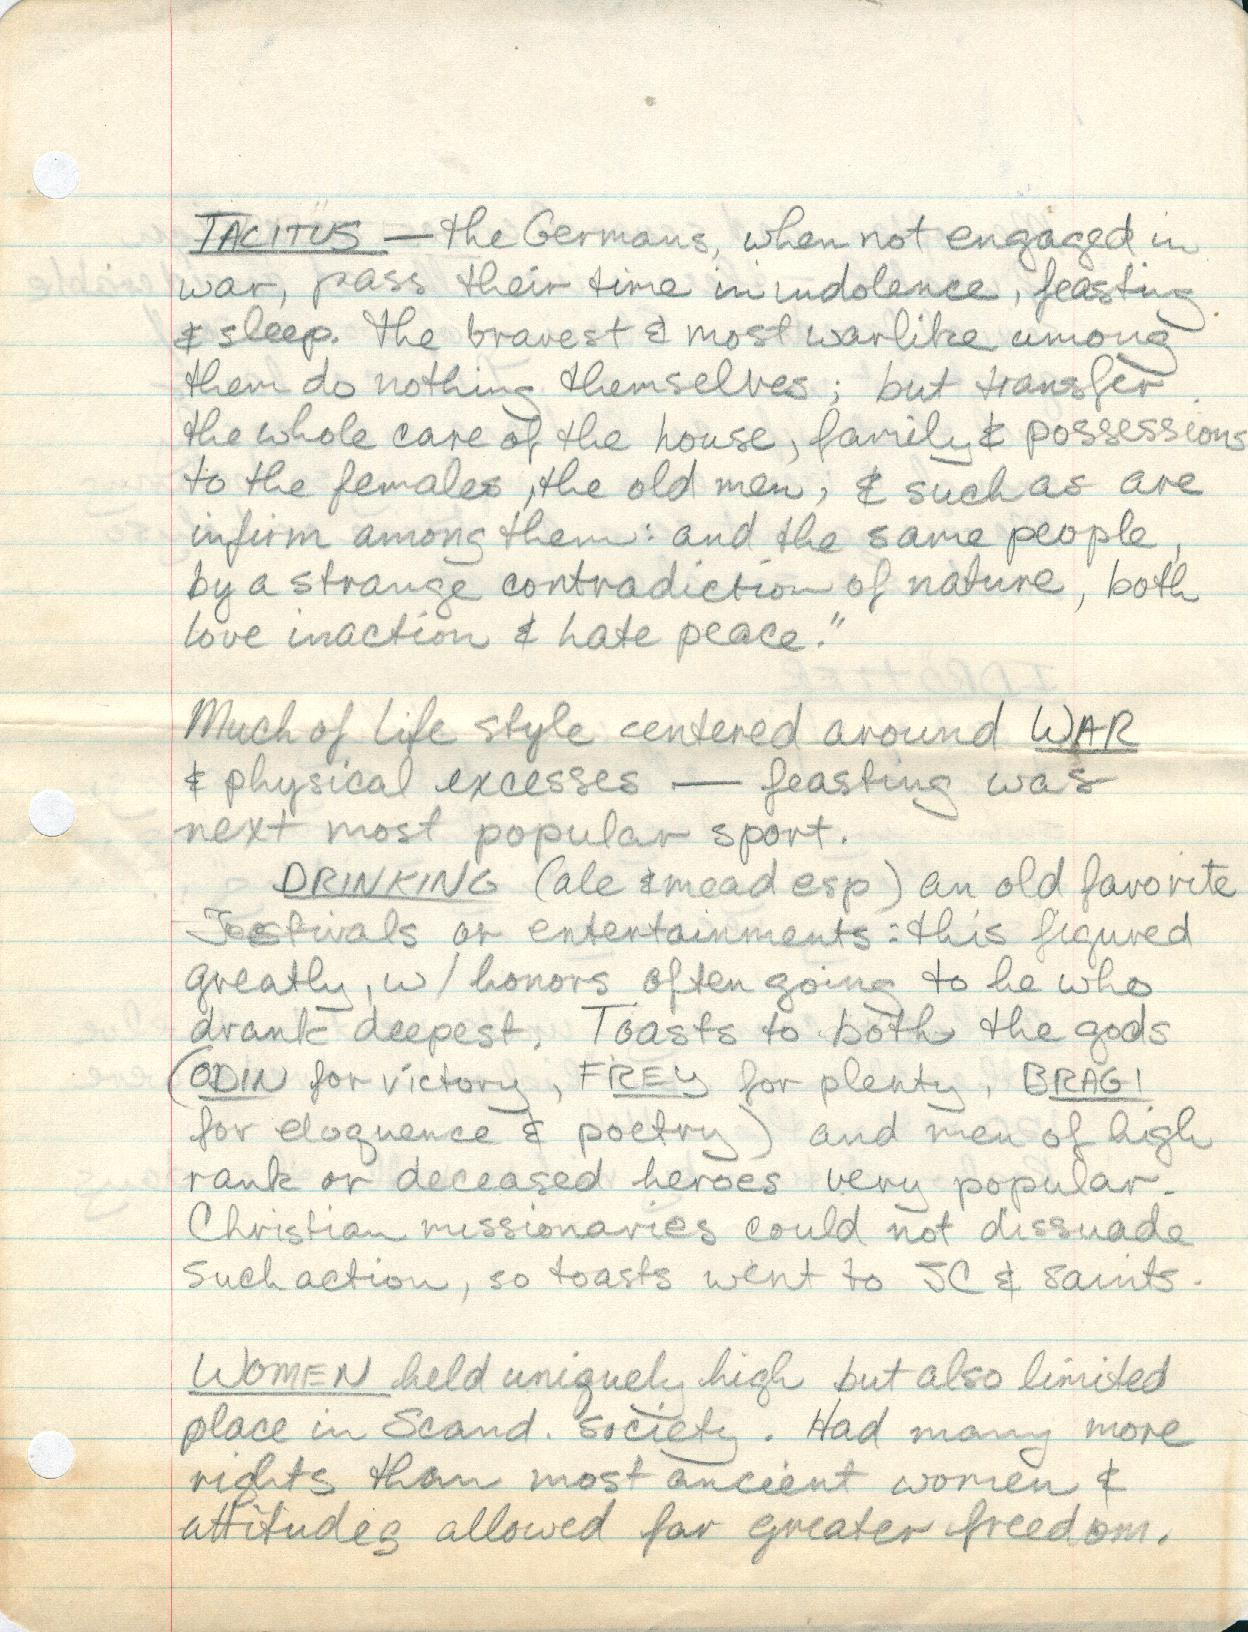 TACITUS — the Germans, when not engaged in
war, pass their time in indolence, feasting
& sleep. The bravest & most warlike among
them do nothing themselves; but transfer
the whole care of the house, family & possessions
to the females, the old men, & such as are
infirm among them: and the same people,
by a strange contradiction of nature, both
love inaction & hate peace."
Much of Life style centered around WAR
& physical excesses — feasting was
next most popular sport.
DRINKING (ale & mead esp) an old favorite
Festivals or entertainments: this figured
greatly, w/ honors often going to he who
drank deepest. Toasts to both the gods
(ODIN for victory, FREY for plenty, BRAGI
for eloquence & poetry) and men of high
rank or deceased heroes very popular.
Christian missionaries could not dissuade
such action, so toasts went to JC & saints.
WOMEN held uniquely high but also limited
place in Scand. society. Had many more
rights than most ancient women &
attitudes allowed far greater freedom.